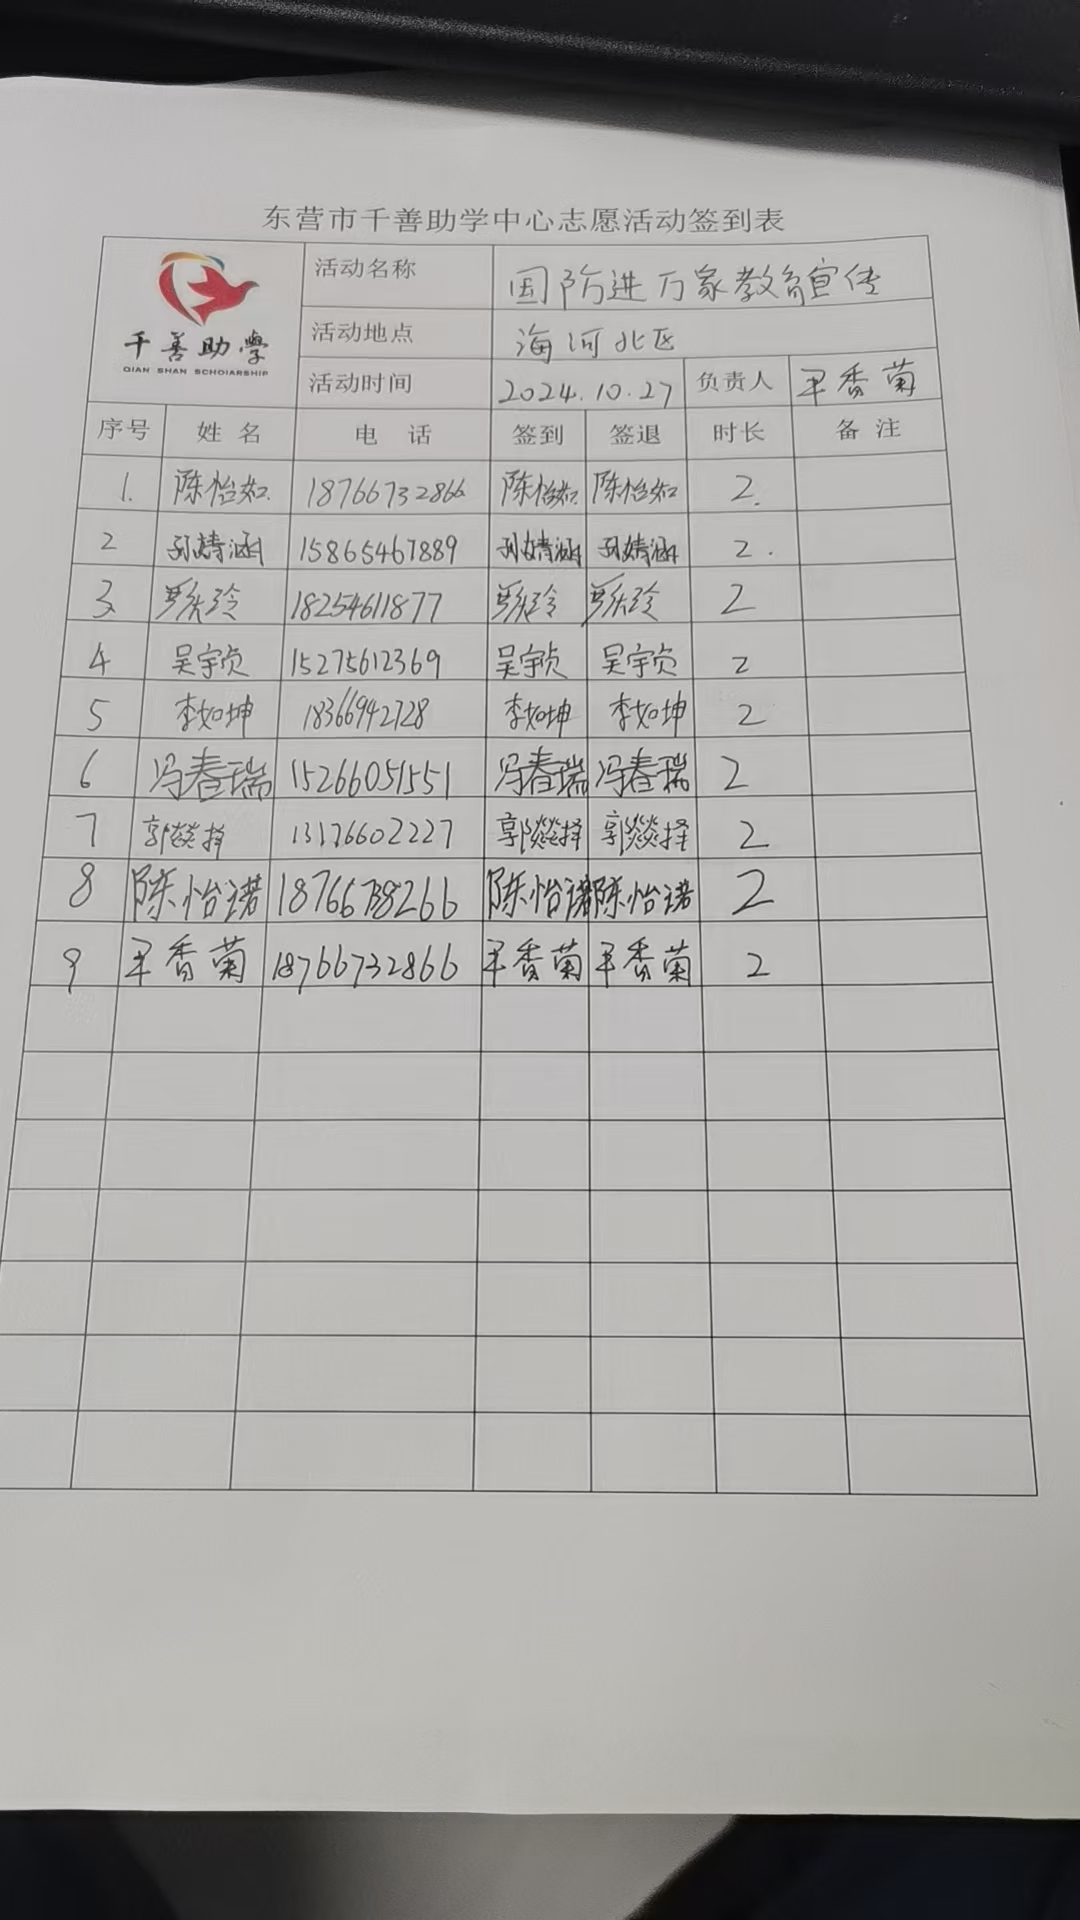 东营市千善助学中心志愿活动签到表
千善助学
QIAN SHAN SCHOIARSHIP
活动名称 国防进万家教育宣传
活动地点 海河北区
活动时间 2024.10.27 负责人 香菊
序号 姓名 电话 签到 签退 时长 备注
1. 陈怡如 18766732866 陈怡如 陈怡如 2.
2 孙婧涵 15865467889 孙婧涵 孙婧涵 2.
3 18254611877 2
4 吴宇贞 15275612369 吴宇贞 吴宇贞 2
5 李如坤 18366942728 李如坤 李如坤 2
6 冯春瑞 15266051551 冯春瑞 冯春瑞 2
7 郭燚择 13176602227 郭燚择 郭燚择 2
8 陈怡诺 陈怡诺 陈怡诺 2
9 香菊 18766732866 香菊 香菊 2